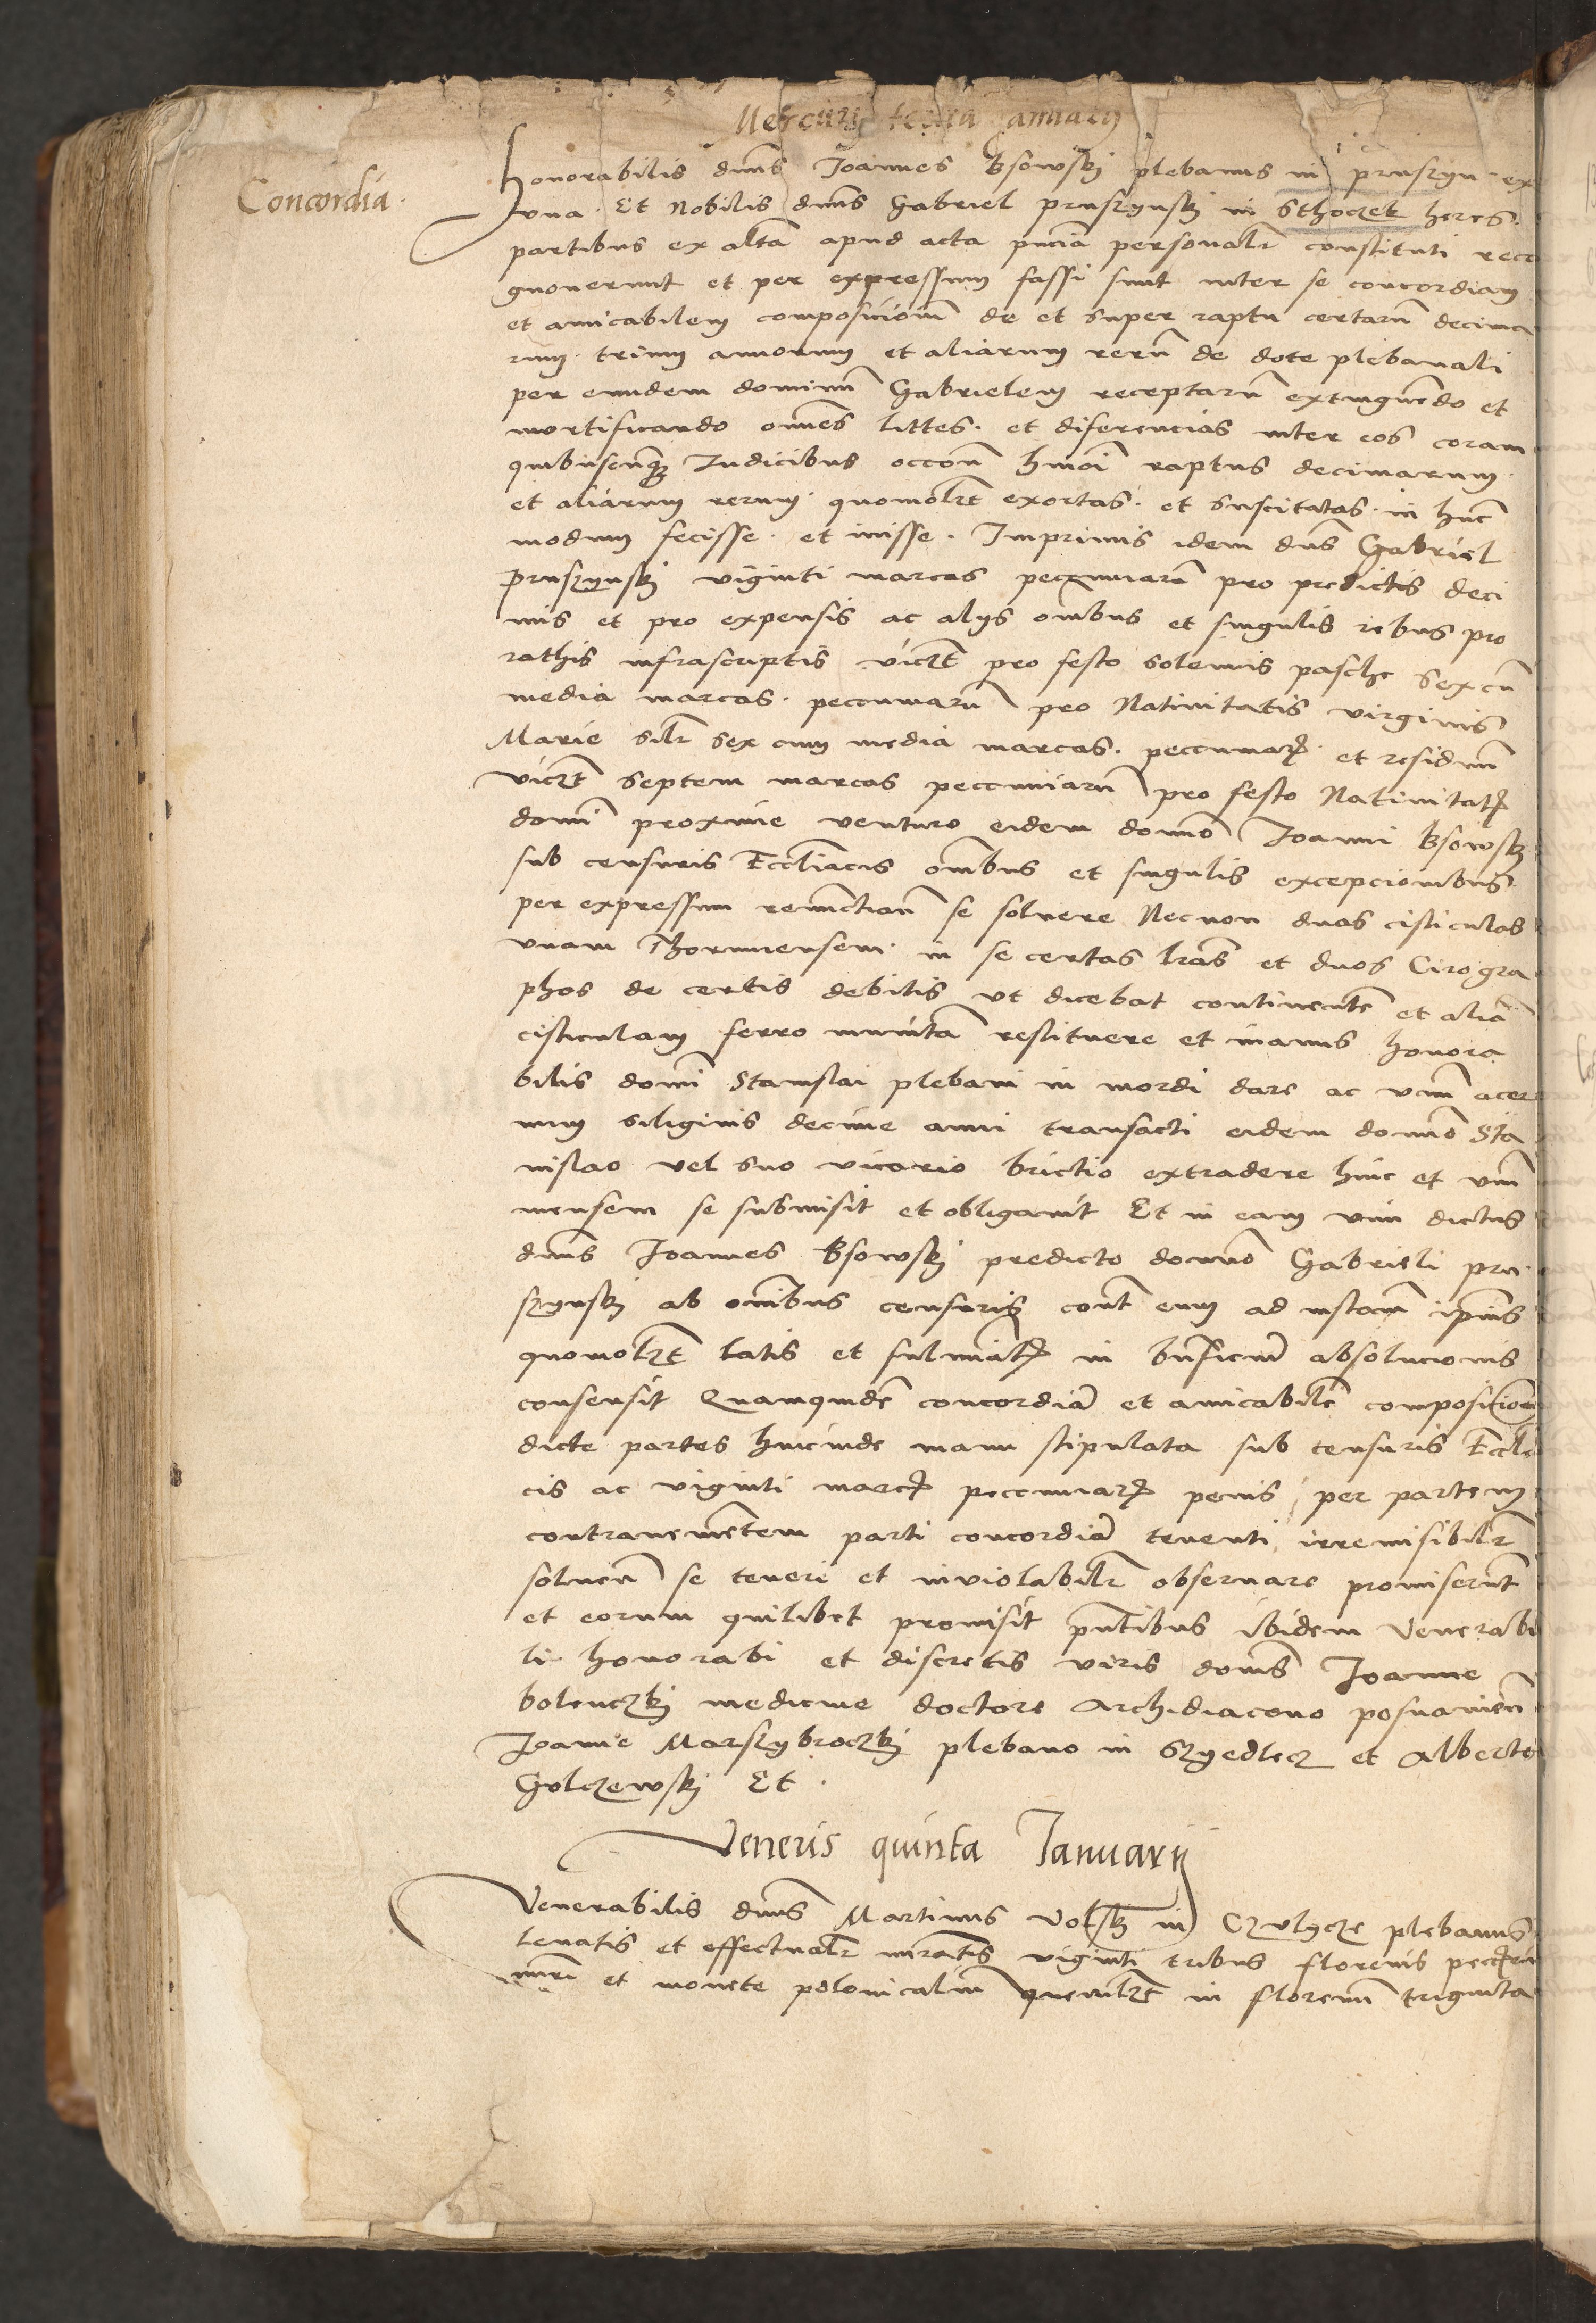 Mercurii tercia Januarij
Concordia.
Honorabilis dnus Joannes Bsowskj plebanus in pruszyn ex
vna. Et Nobilis dnus Gabriel pruszynskj in Sthoczek heres.
partibus ex altā apud acta pncia personalr constituti reco
gnouerunt et per expressum fassi sunt inter se concordiam
et amicabilem composicionē de et super raptu certarū decima
rum. trium annorum et aliarum rerū de dote plebanali
per eundem dominū Gabrielem receptarū extingwēdo et
mortificando omnes littes. et diferencias inter eos coram
quibuscunqz Judicibus occōn hmōi raptus decimarum.
et aliarum rerum. quomolzt exortas. et suscitatas. in hūc
modum fecisse. et inisse. Imprimis idem dnus Gabriel
pruszynskj viginti marcas pecuniarū pro predictis deci
mis et pro expensis ac alijs omībus et singulis rebus pro
rathis infrascriptis viczt pro festo solemnis pasche sex cū
media marcas. peccuniarū pro Natiuitatis virginis
Marie silr sex cum media marcas. peccuniarz et residuū
viczt septem marcas peccuniarū pro festo Natiuitatz
domī proxime venturo eidem domno Joanni Bsowskj
sub censuris Ecclīacis omībus et singulis excepcionibus
per expressum renuncian se soluere Necnon duas cisticulas
vnam Thorunensem. in se certas lras et duos Cirogra
phos de certis debitis vt dicebat continentē et aliā
cisticulam ferro munitā restituere et manus honora
bilis domī Stanislai plebani in mordi dare ac vnū acer
uum siliginis decime anni transacti eidem domno Sta
nislao vel suo vicario brictio extradere hinc et vnū
mensem se submisit et obligauit Et in eam vim dictus
dnus Joannes Bsowskj predicto domno Gabrieli pru
szynskj ab omībus censuris contr eum ad instām ipius
quomolzt latis et fulminatz in bnficiū absolucionis
consensit Quamquidē concordiā et amicabilē composicioē
dicte partes hincinde manu stipulata sub censuris Eccle
cis ac viginti marcz peccuniarz penis per partem
contrauenientem parti concordiā tenenti irremisibilr
soluen se tenere et inviolabilr obseruare promiserūt
et eorum quilibet promisit pntibus ibidem Venerabi
li honorabi et discretis viris domīs Joanne
bolenczkj medicine doctore Archidiacono posnanien
Joanne Marszybroczkj plebano in Szyedlecz et Alberto
Golczewskj Et.
Veneris quinta Januarij
Venerabilis dnus Martinus Volskj in Czulycze plebanus
leuatis et effectualr numeratis viginti tribus florenis
numeri et monete polonicalium quemlzt in florenū triginta